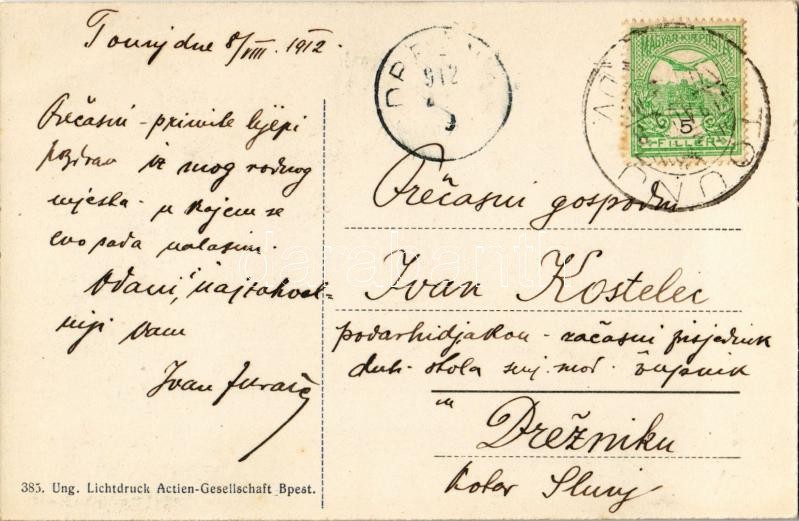 Tounj dne 8/VIII. 1912.
Prečasni - primite lijepi
pozdrav iz mog rodnog
mjesta - u kojem se
evo sada nalazim.
Odani, najzahval-
niji Vam
Ivan Juraić
385. Ung. Lichtdruck Actien-Gesellschaft Bpest.
912
MAGYAR KIR. POSTA
5
FILLER
TOUNJ
Prečasni gospodin
Ivan Kostelec
podarhidjakon - začasni prisjednik
duh. stola senj. mod. župnik
u
Drežniku
Kotar Slunj